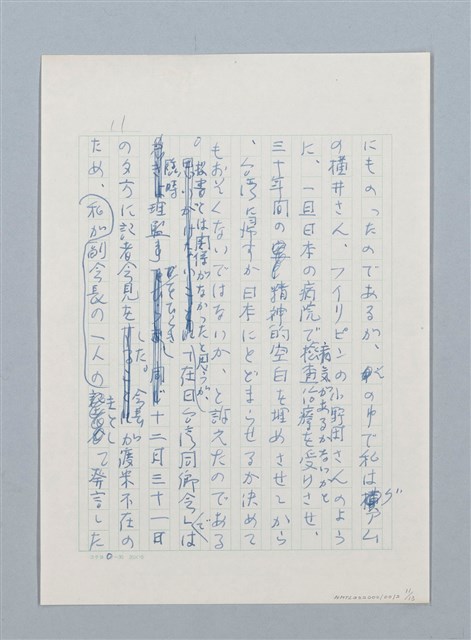 11
にものったのであるが、その中で私はグアム
の横井さん、フイリピンの小野田さんのよう
に、一旦日本の病院で病気があるかないかと検査治療を受けさせ、
三十年間の精神的空白を埋めさせてから
、台湾に帰すか日本にとどまらせるか決めて
もおそくないではないか、と訴えたのである
。投書とは関係がなかったと思うが、在日台湾同郷会では
臨時理監事会をひらき、十二月三十一日
の夕方に記者会見をした。会長が渡米不在の
ため、私が副会長の一人の
として発言した